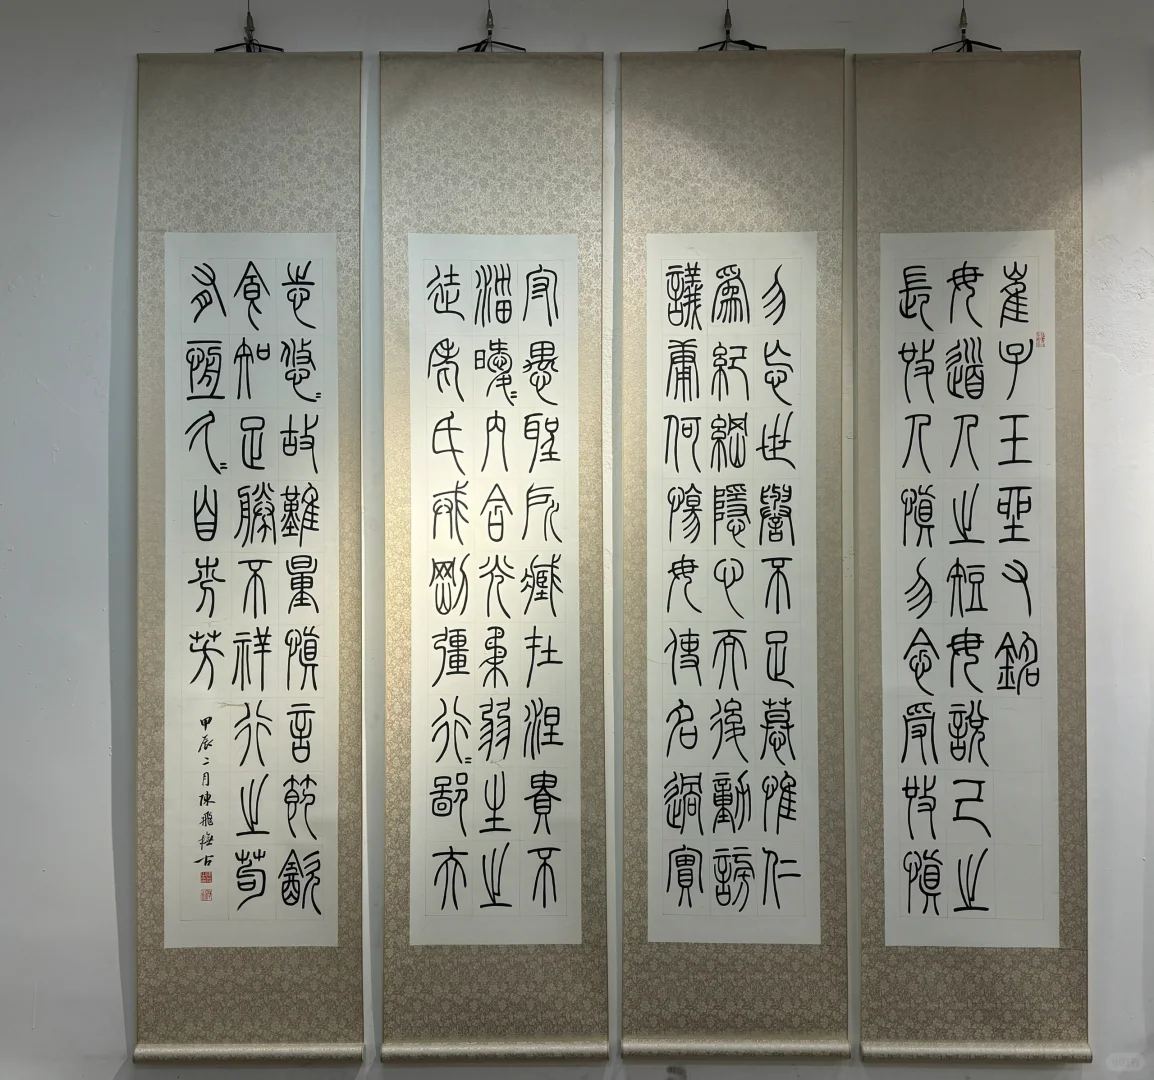 崔子玉坐右銘
毋道人之短毋說己之
長施人慎勿念受施慎
勿忘世譽不足慕惟仁
為紀綱隱心而後動謗
議庸何傷毋使名過實
守愚聖所臧在涅貴不
淄曖〻內含光柔弱生之
徒老氏誡剛彊行〻鄙夫
志悠〻故難量慎言節飲
食知足勝不祥行之苟
有恆久〻自芬芳
甲辰二月陳飛橅古